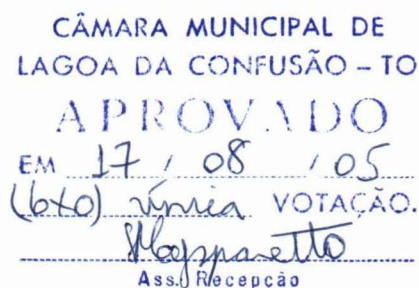 CÂMARA MUNICIPAL DE
LAGOA DA CONFUSÃO – TO
APROVADO
EM 17 / 08 / 05
(6x0) única VOTAÇÃO.
Ass. Recepção